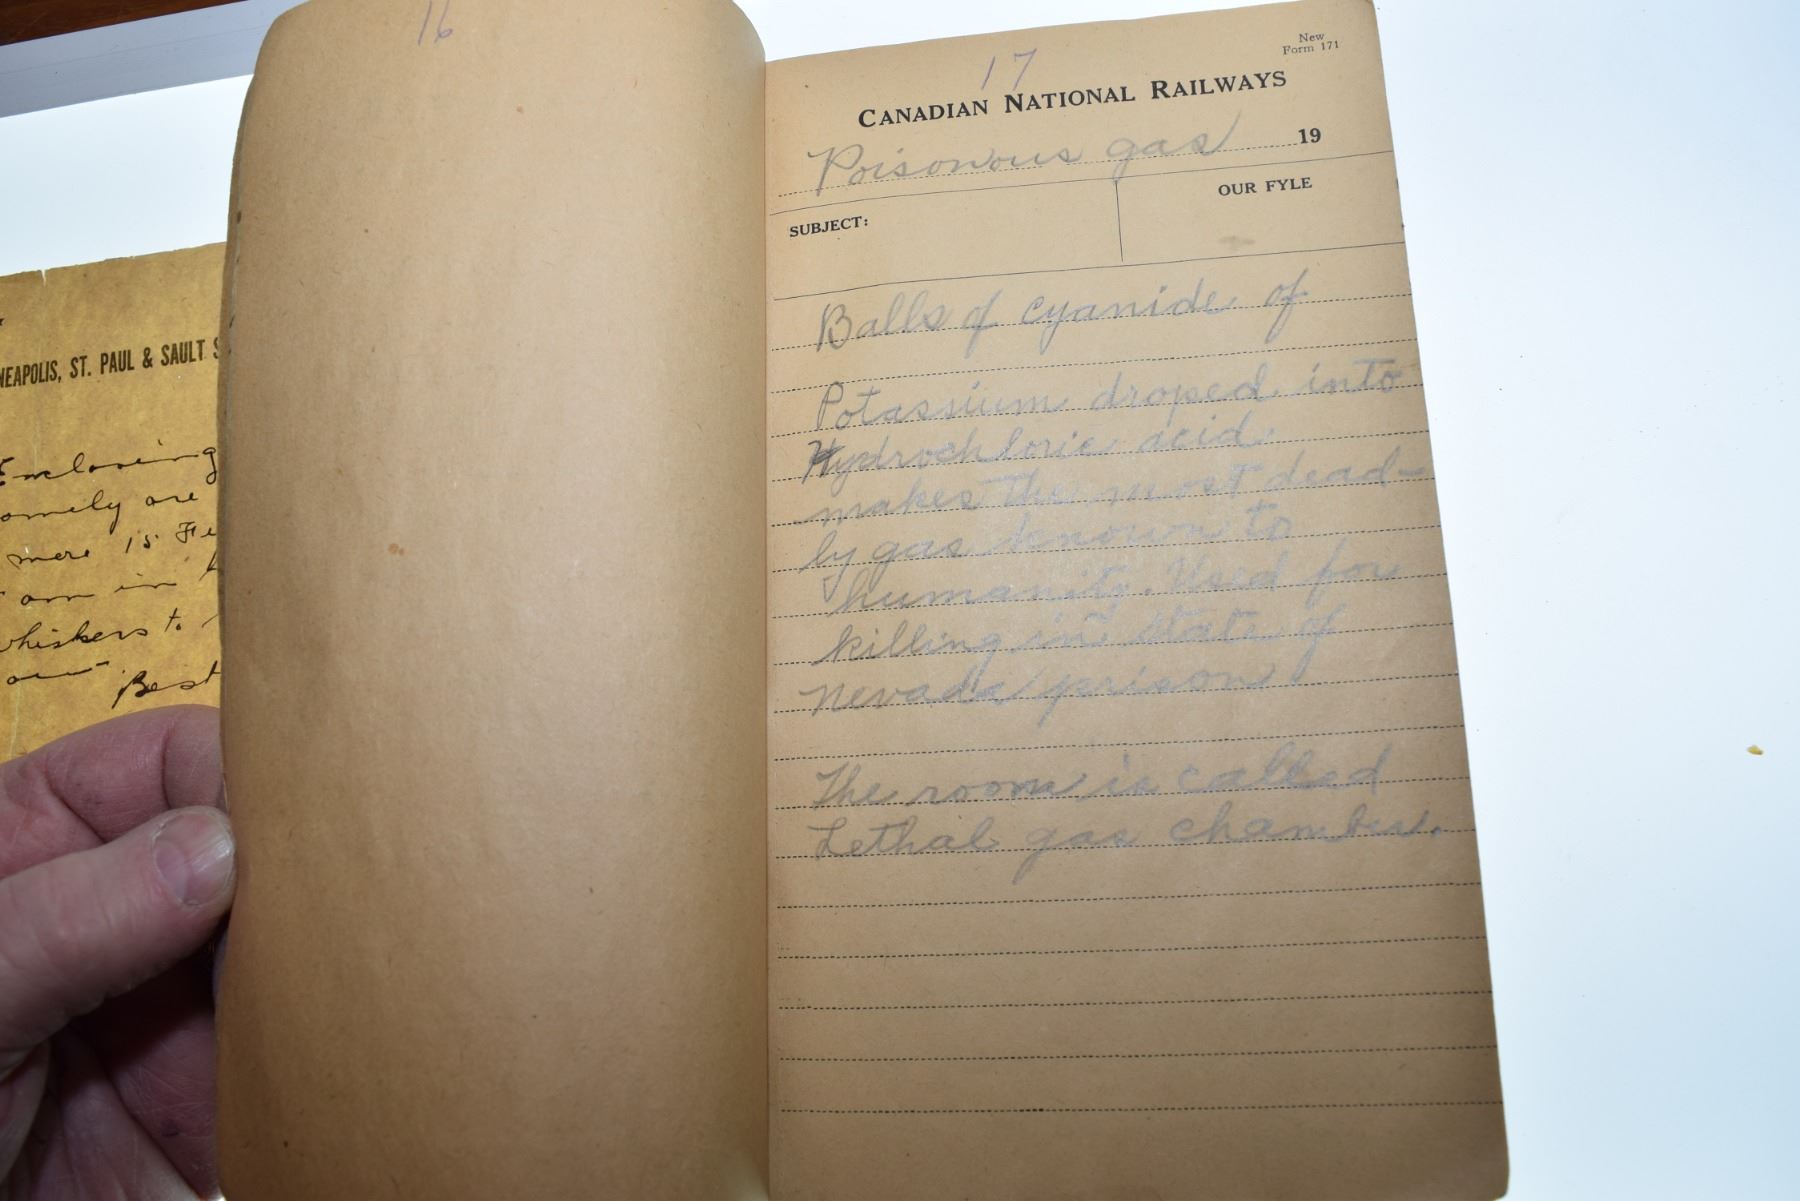 16
NEAPOLIS, ST. PAUL & SAULT S
Enclosing
omely are
mere is Fe
am in
whiskers to
our
Best
17
New
Form 171
CANADIAN NATIONAL RAILWAYS
Poisonous gas 19
OUR FYLE
SUBJECT:
Balls of cyanide of
Potassium droped into
Hydrochloric acid
makes the most dead-
ly gas known to
humanity. Used for
killing in state of
Nevada prison
The room is called
Lethal gas chamber.